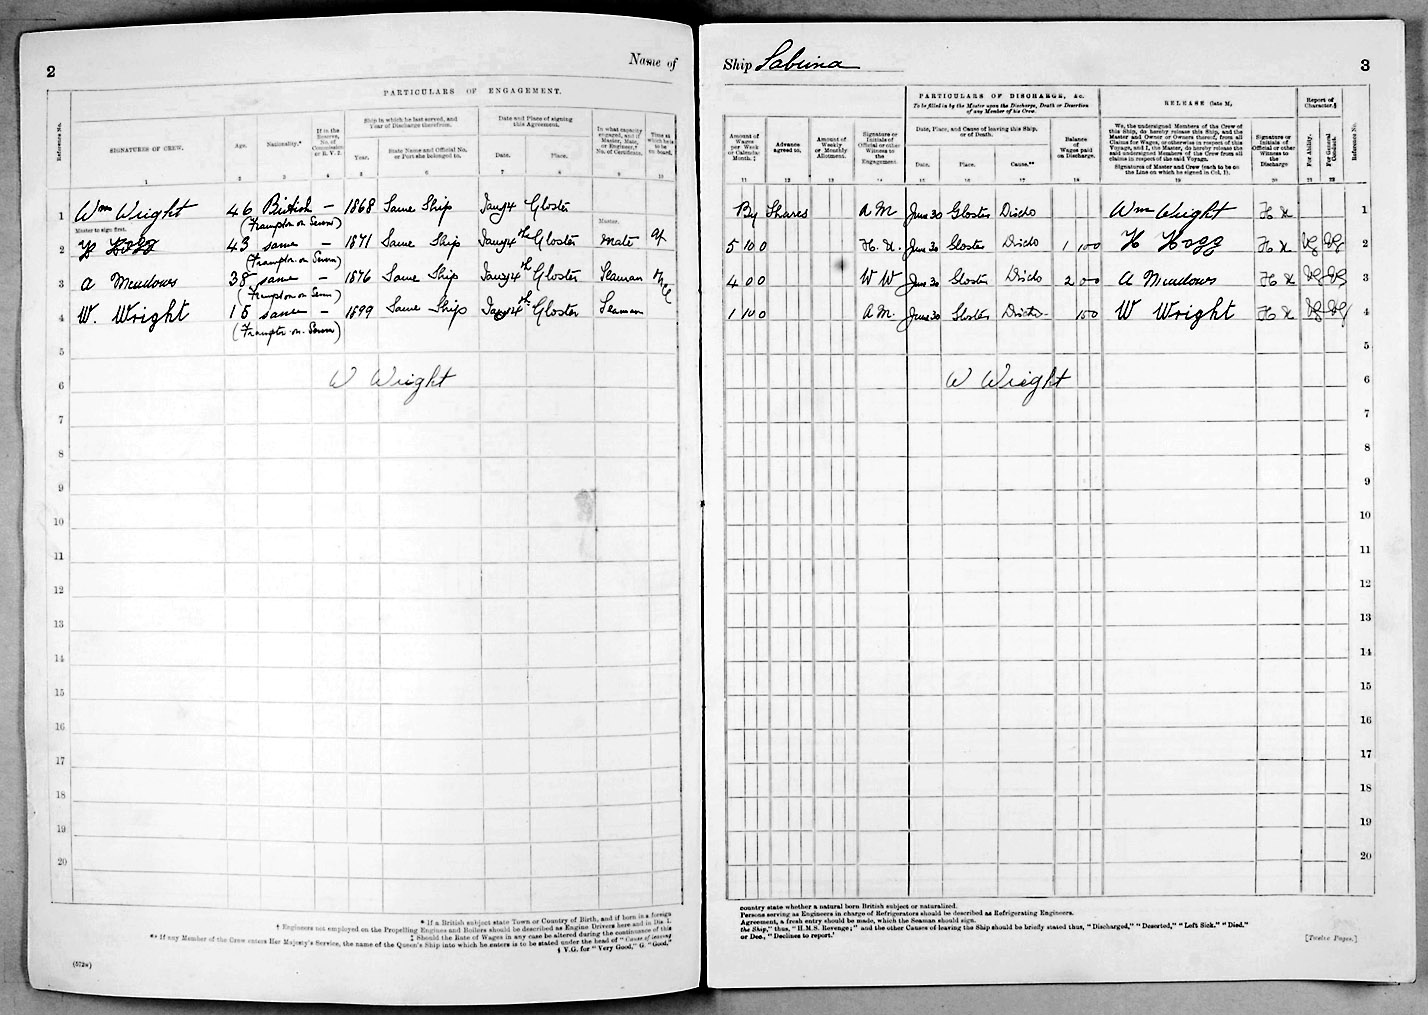 2
Name of
PARTICULARS OF ENGAGEMENT.
Reference No.
SIGNATURES OF CREW.
Age.
Nationality.*
If in the Reserve, No. of Commission or R. V. 2.
Ship in which he last served, and Year of Discharge therefrom.
Year.
State Name and Official No. or Port she belonged to.
Date and Place of signing this Agreement.
Date.
Place.
In what capacity engaged, and if Master, Mate, or Engineer,† No. of Certificate.
Time at which he is to be on board.
1 2 3 4 5 6 7 8 9 10
1 Wm Wright 46 British – 1868 Same Ship Jany 4 Gloster
Master to sign first.
(Frampton on Severn)
Master.
2 H Hogg 43 same – 1871 Same Ship Jany 4th Gloster Mate at
(Frampton on Severn)
3 A Meadows 38 same – 1876 Same Ship Jany 4th Gloster Seaman once
(Frampton on Severn)
4 W. Wright 15 same – 1899 Same Ship Jany 4th Gloster Seaman
(Frampton on Severn)
5
6 W Wright
7
8
9
10
11
12
13
14
15
16
17
18
19
20
* If a British subject state Town or Country of Birth, and if born in a foreign
† Engineers not employed on the Propelling Engines and Boilers should be described as Engine Drivers here and in Dis. 1.
‡ Should the Rate of Wages in any case be altered during the continuance of this
** If any Member of the Crew enters Her Majesty's Service, the name of the Queen's Ship into which he enters is to be stated under the head of "Cause of leaving
§ V.G. for "Very Good," G. "Good,"
Ship Sabrina
3
PARTICULARS OF DISCHARGE, &c.
To be filled in by the Master upon the Discharge, Death or Desertion of any Member of his Crew.
Amount of Wages per Week or Calendar Month.‡
Advance agreed to.
Amount of Weekly or Monthly Allotment.
Signature or Initials of Official or other Witness to the Engagement
Date, Place, and Cause of leaving this Ship, or of Death.
Date.
Place.
Cause.**
Balance of Wages paid on Discharge.
RELEASE (late M),
We, the undersigned Members of the Crew of this Ship, do hereby release this Ship, and the Master and Owner or Owners thereof, from all Claims for Wages, or otherwise in respect of this Voyage, and I, the Master, do hereby release the said undersigned Members of the Crew from all claims in respect of the said Voyage.
Signatures of Master and Crew (each to be on the Line on which he signed in Col. 1).
Signature or Initials of Official or other Witness to the Discharge
Report of Character.§
For Ability.
For General Conduct.
Reference No.
11 12 13 14 15 16 17 18 19 20 21 22
By Shares A M June 30 Gloster Discd Wm Wright 1
5 10 0 June 30 Gloster Discd 1 10 0 H Hogg VG VG 2
4 0 0 W W June 30 Gloster Discd 2 0 0 A Meadows VG VG 3
1 10 0 A M. June 30 Gloster Discd 15 0 W Wright VG VG 4
5
W Wright 6
7
8
9
10
11
12
13
14
15
16
17
18
19
20
country state whether a natural born British subject or naturalized.
Persons serving as Engineers in charge of Refrigerators should be described as Refrigerating Engineers.
Agreement, a fresh entry should be made, which the Seaman should sign.
the Ship," thus, "H.M.S. Revenge;" and the other Causes of leaving the Ship should be briefly stated thus, "Discharged," "Deserted," "Left Sick," "Died."
or Dec., "Declines to report.'
[Twelve Pages.]